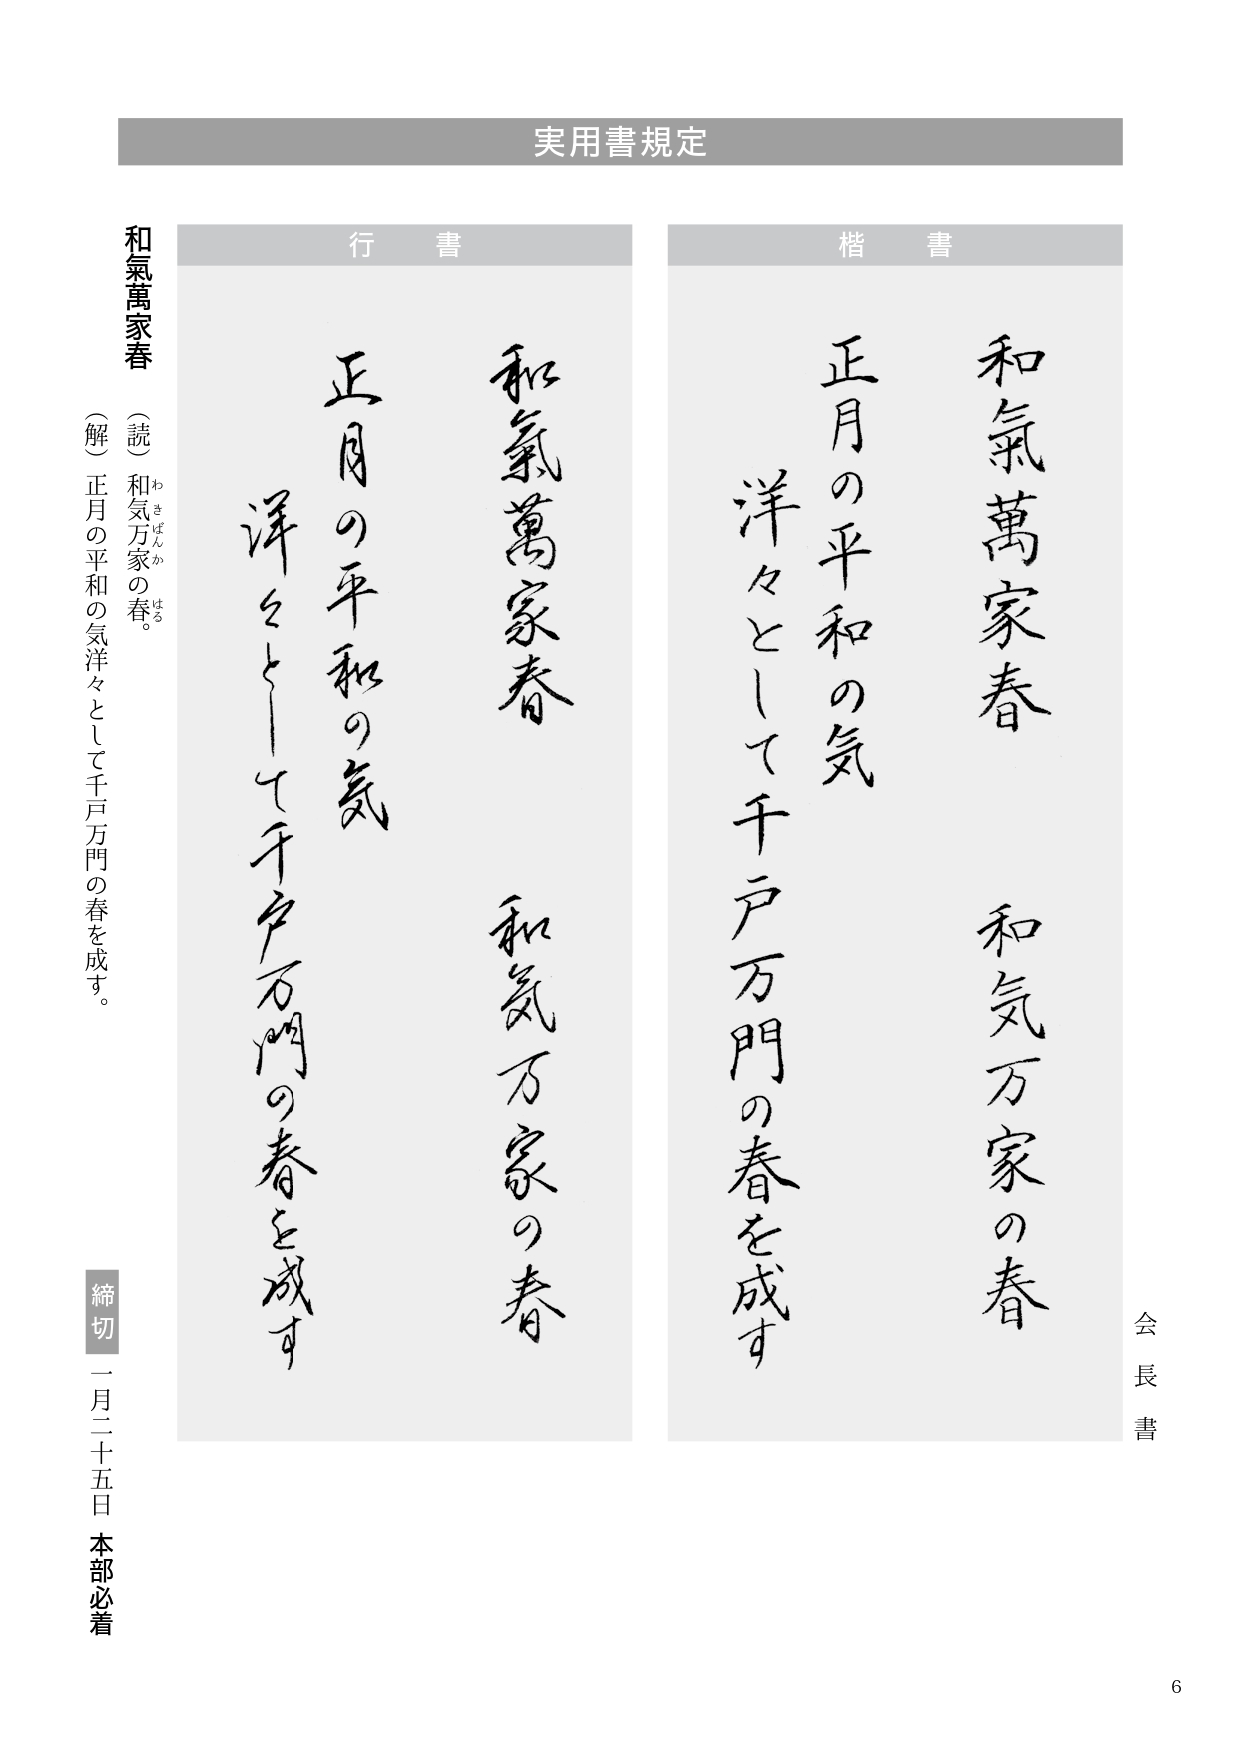 実用書規定
会長書
楷書
和氣萬家春　和気万家の春
正月の平和の気
洋々として千戸万門の春を成す
行書
和氣萬家春　和気万家の春
正月の平和の気
洋々として千戸万門の春を成す
和氣萬家春
（読）和気万家の春。
わきばんか　はる
（解）正月の平和の気洋々として千戸万門の春を成す。
締切　一月二十五日　本部必着
6